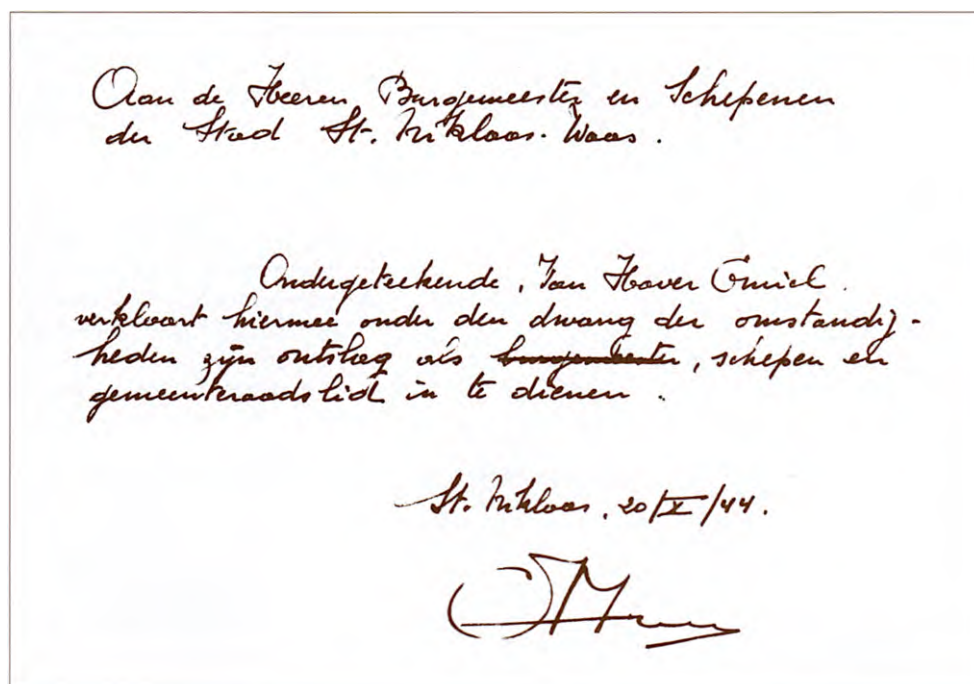 Aan de Heeren Burgemeester en Schepenen
der Stad St. Niklaas-Waas.
Ondergeteekende, Van Haver Emiel.
verklaart hiermee onder den dwang der omstandig-
heden zijn ontslag als burgemeester, schepen en
gemeenteraadslid in te dienen.
St. Niklaas, 20/X/44.